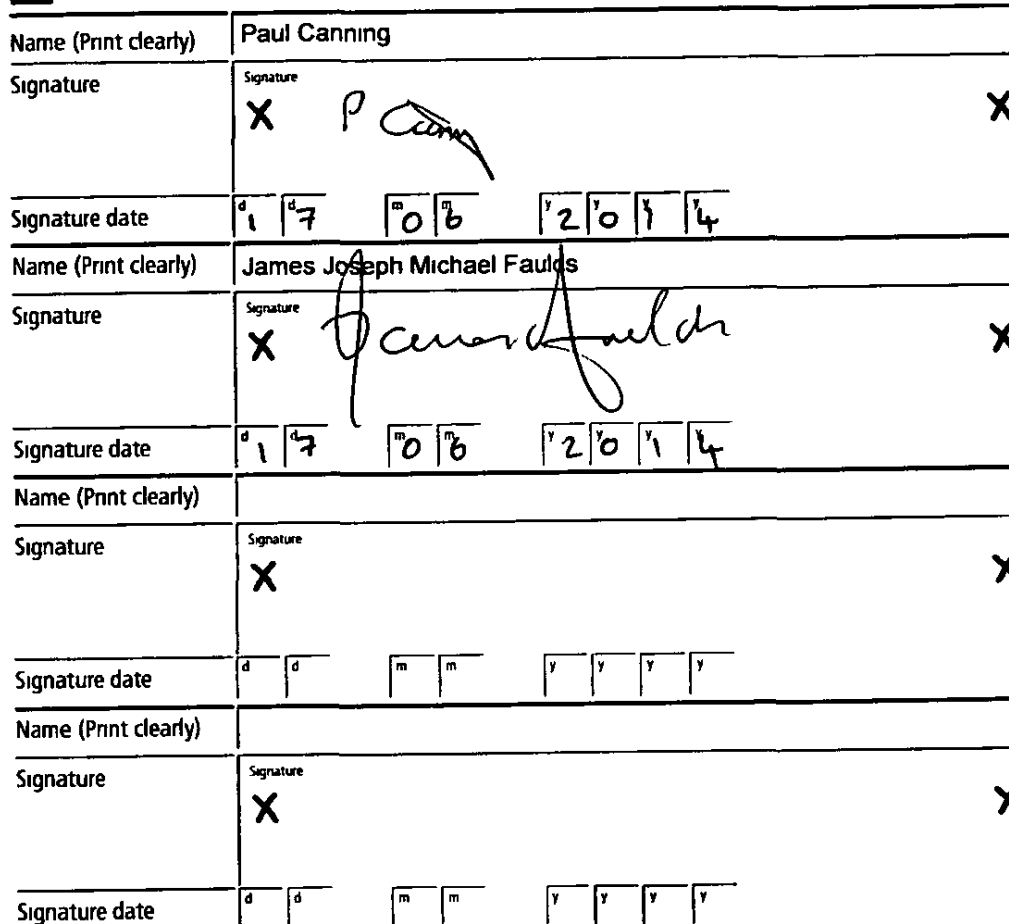 Name (Print clearly) Paul Canning
Signature Signature
X P Canning X
Signature date d 1 d 7 m 0 m 6 y 2 y 0 y 1 y 4
Name (Print clearly) James Joseph Michael Faulds
Signature Signature
X James Faulds X
Signature date d 1 d 7 m 0 m 6 y 2 y 0 y 1 y 4
Name (Print clearly)
Signature Signature
X X
Signature date d d m m y y y y
Name (Print clearly)
Signature Signature
X X
Signature date d d m m y y y y